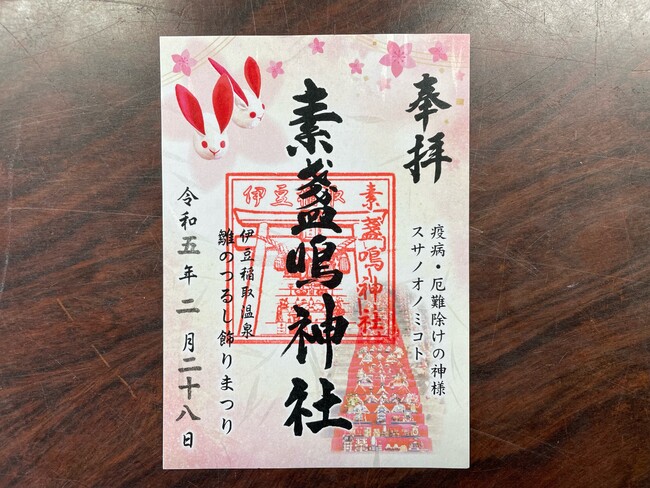 奉拝
疫病・厄難除けの神様
スサノオノミコト
素盞鳴神社
素盞鳴神社
伊豆稲取
伊豆稲取温泉
雛のつるし飾りまつり
令和五年二月二十八日